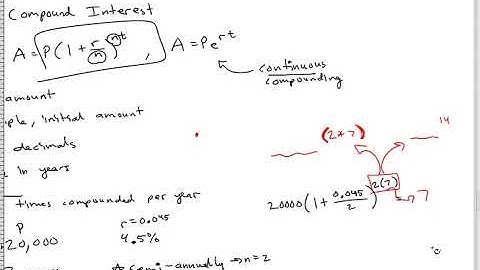 Compound Interest
A = P(1 + r/n)^nt , A = Pe^rt
continuous compounding
amount
ple, initial amount
decimals
in years
times compounded per year
P r = 0.045
20,000 4.5%
semi-annually ⇒ n = 2
(2*7)
14
20000(1 + 0.045/2)^2(7)
7